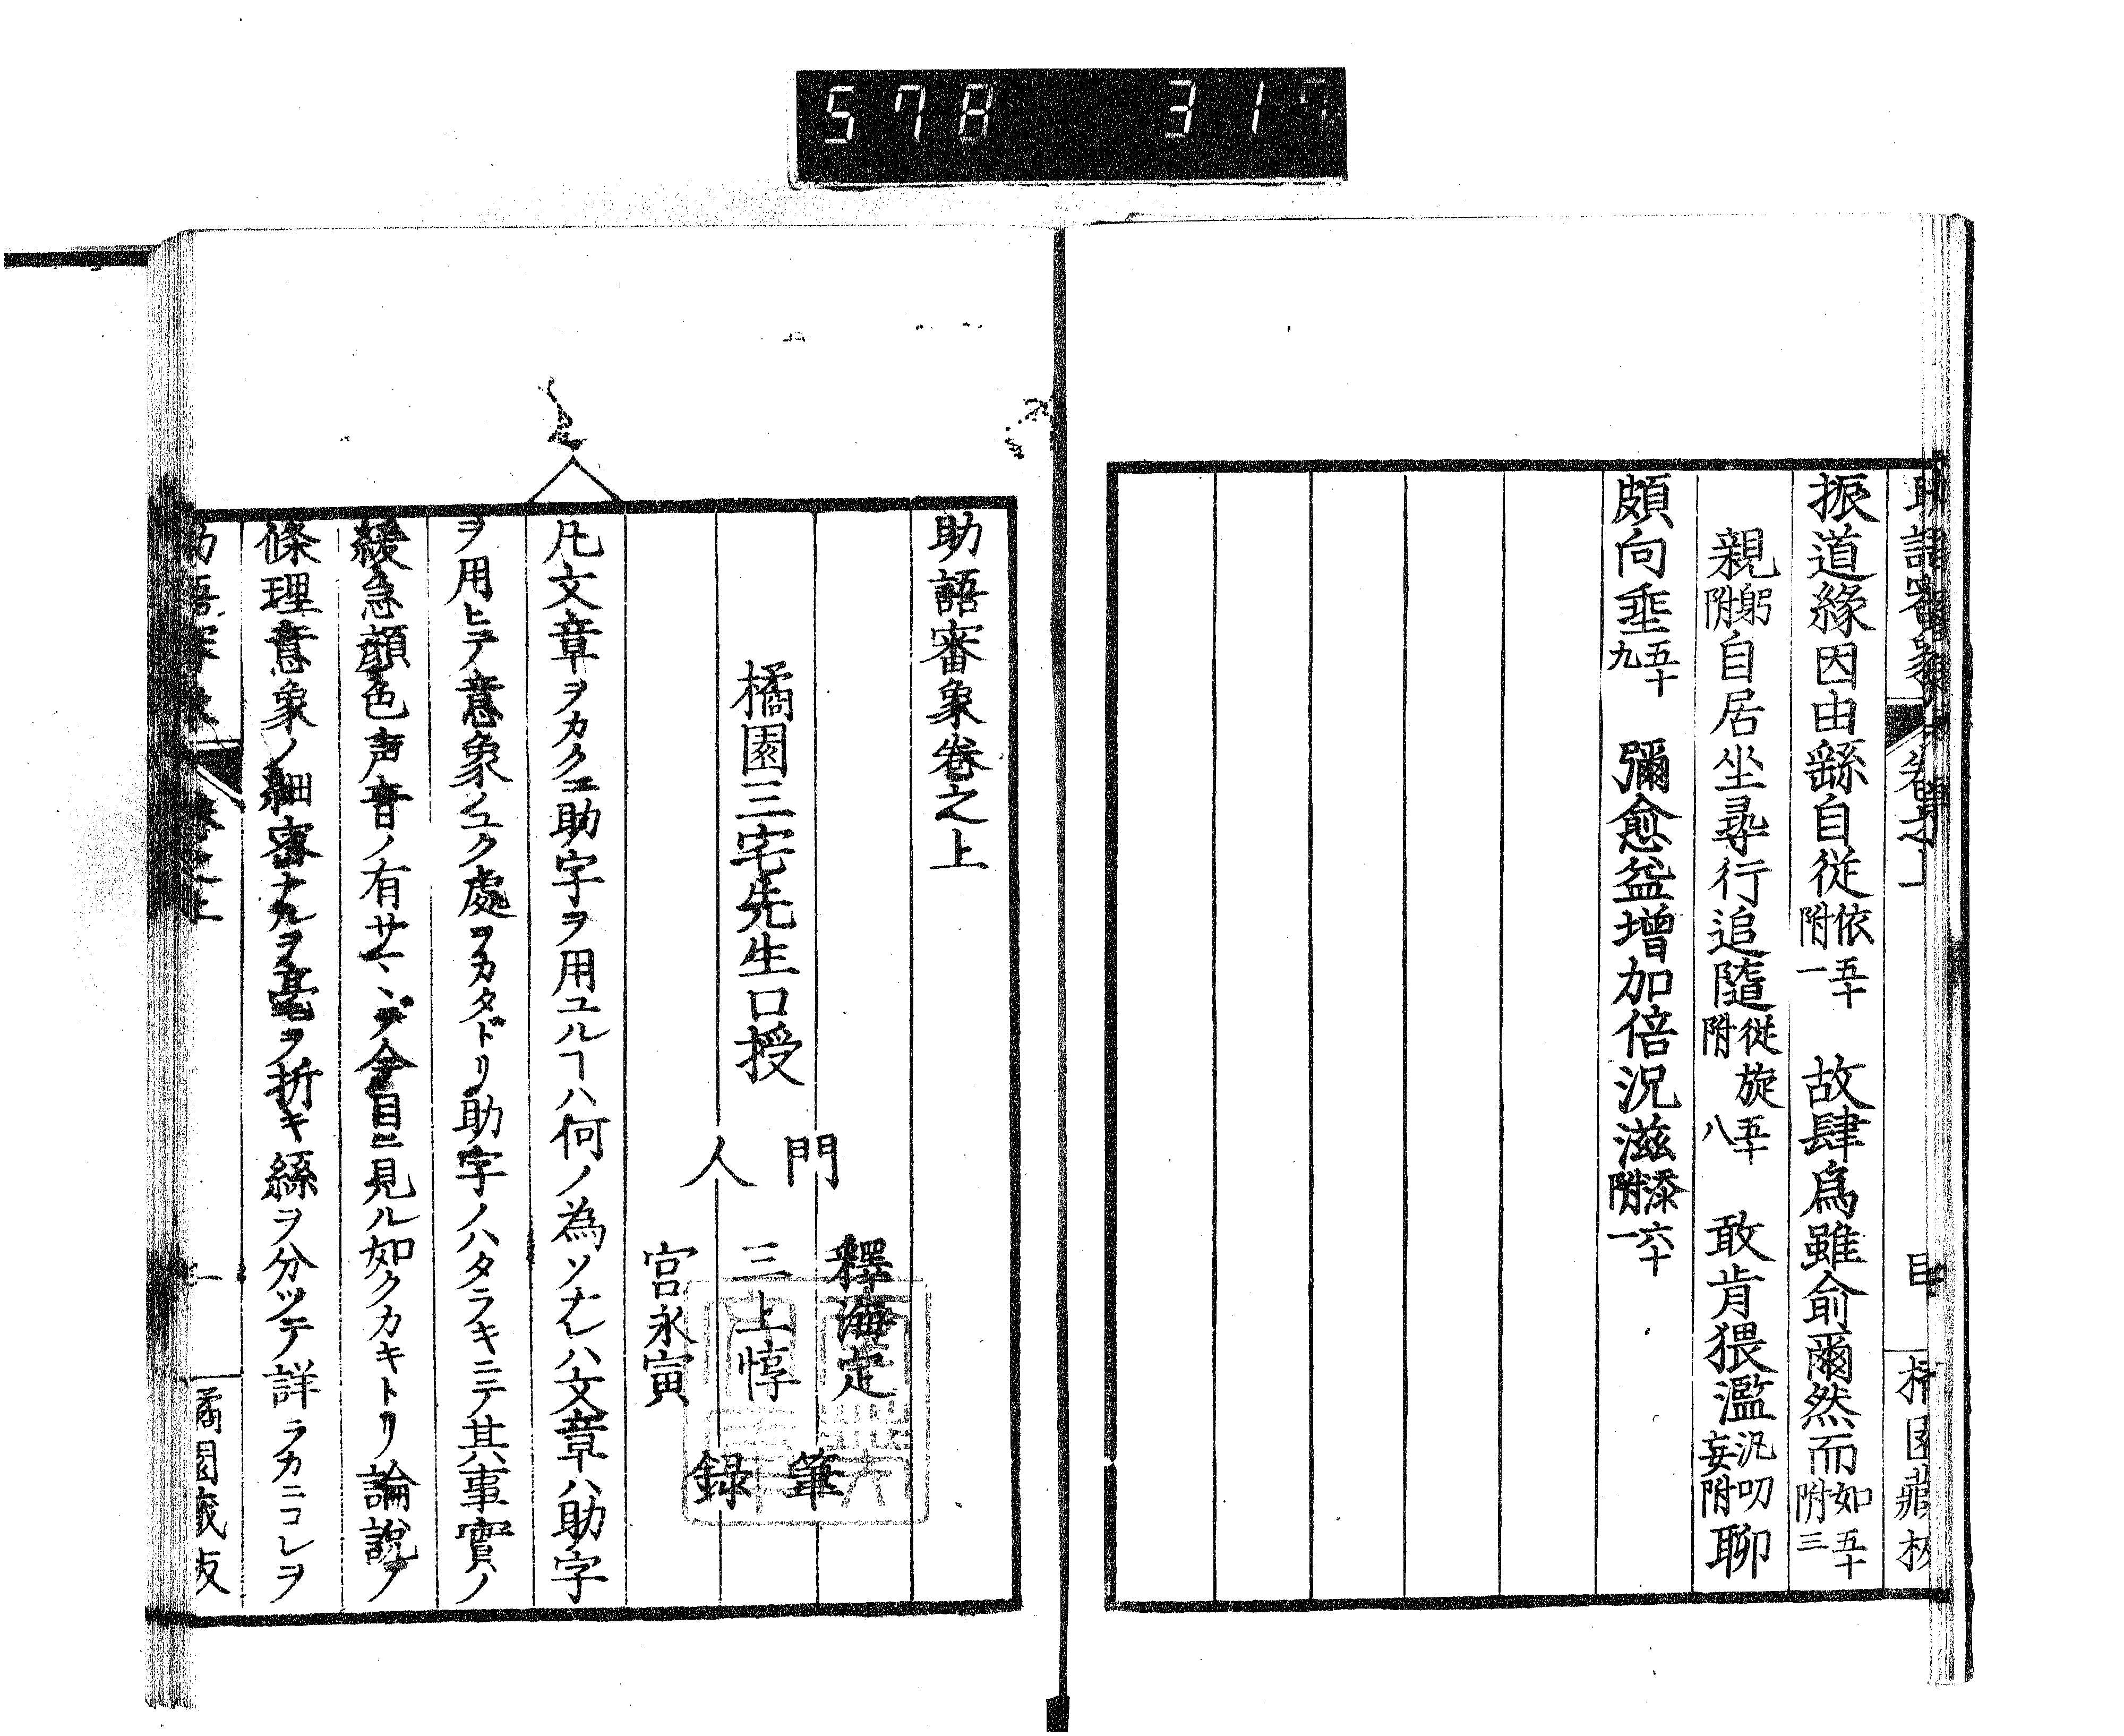 578 317
振道緣因由繇自從依附五十一 故肆爲雖俞爾然而如附五十三
親躬附自居坐尋行追隨從旋附五十八 敢肯猥濫汎叨妄附聊
頗向垂五十九 彌愈益增加倍況滋添附六十一
助語審象卷之上
橘園三宅先生口授
門人
釋海定
三上惇
宮永寅
筆録
凡文章ヲカクニ助字ヲ用ユルヿハ何ノ為ソナレハ文章ハ助字
ヲ用ヒテ意象ノユク處ヲカタドリ助字ノハタラキニテ其事實ノ
緩急顔色声音ノ有サマヽデヲ今目ニ見ル如クカキトリ論說ノ
條理意象ノ細密ナルヲ毫ヲ折キ絲ヲ分ツテ詳ラカニコレヲ
助語審象 卷之上 一 橘園藏板